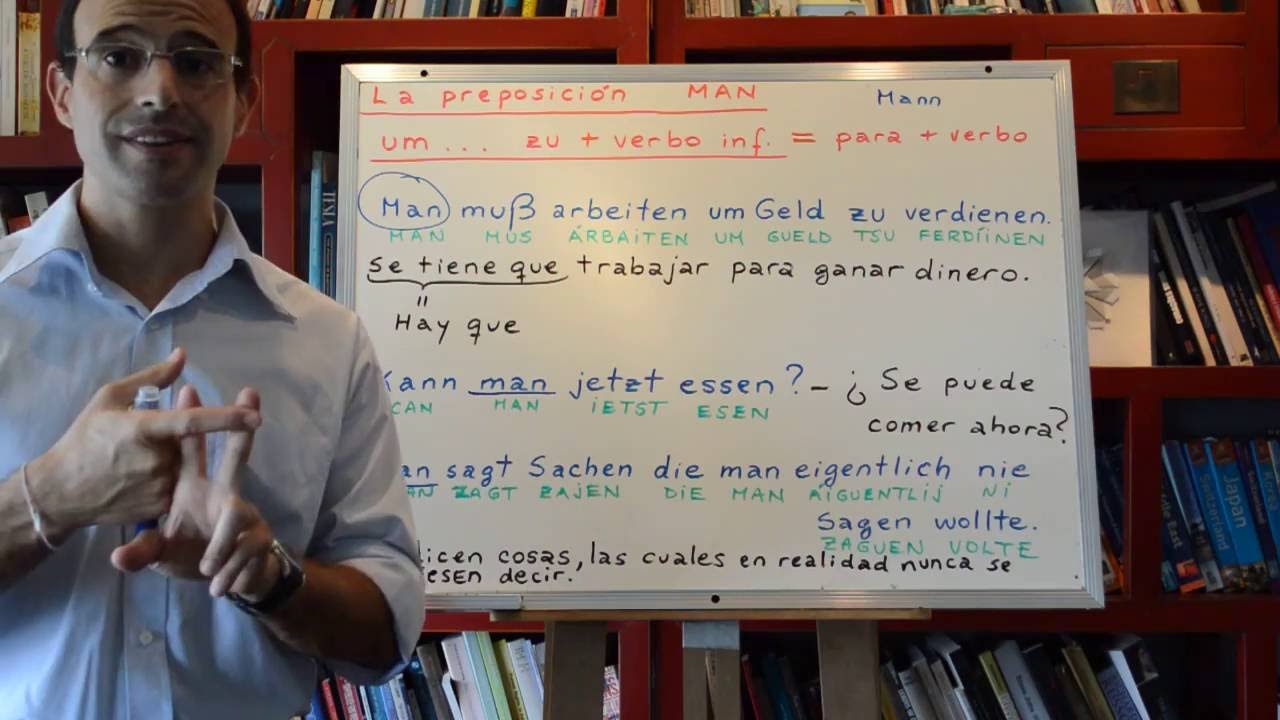 La preposición MAN Mann
um... zu + verbo inf. = para + verbo
Man muß arbeiten um Geld zu verdienen.
MAN MUS ÁRBAITEN UM GUELD TSU FERDÍINEN
se tiene que trabajar para ganar dinero.
"
Hay que
Kann man jetzt essen? – ¿Se puede
CAN MAN IETST ESEN
comer ahora?
an sagt Sachen die man eigentlich nie
AN ZAGT ZAJEN DIE MAN ÁIGUENTLIJ NI
sagen wollte.
ZAGUEN VOLTE
icen cosas, las cuales en realidad nunca se
esen decir.
TESLA
Switzerland
Japan